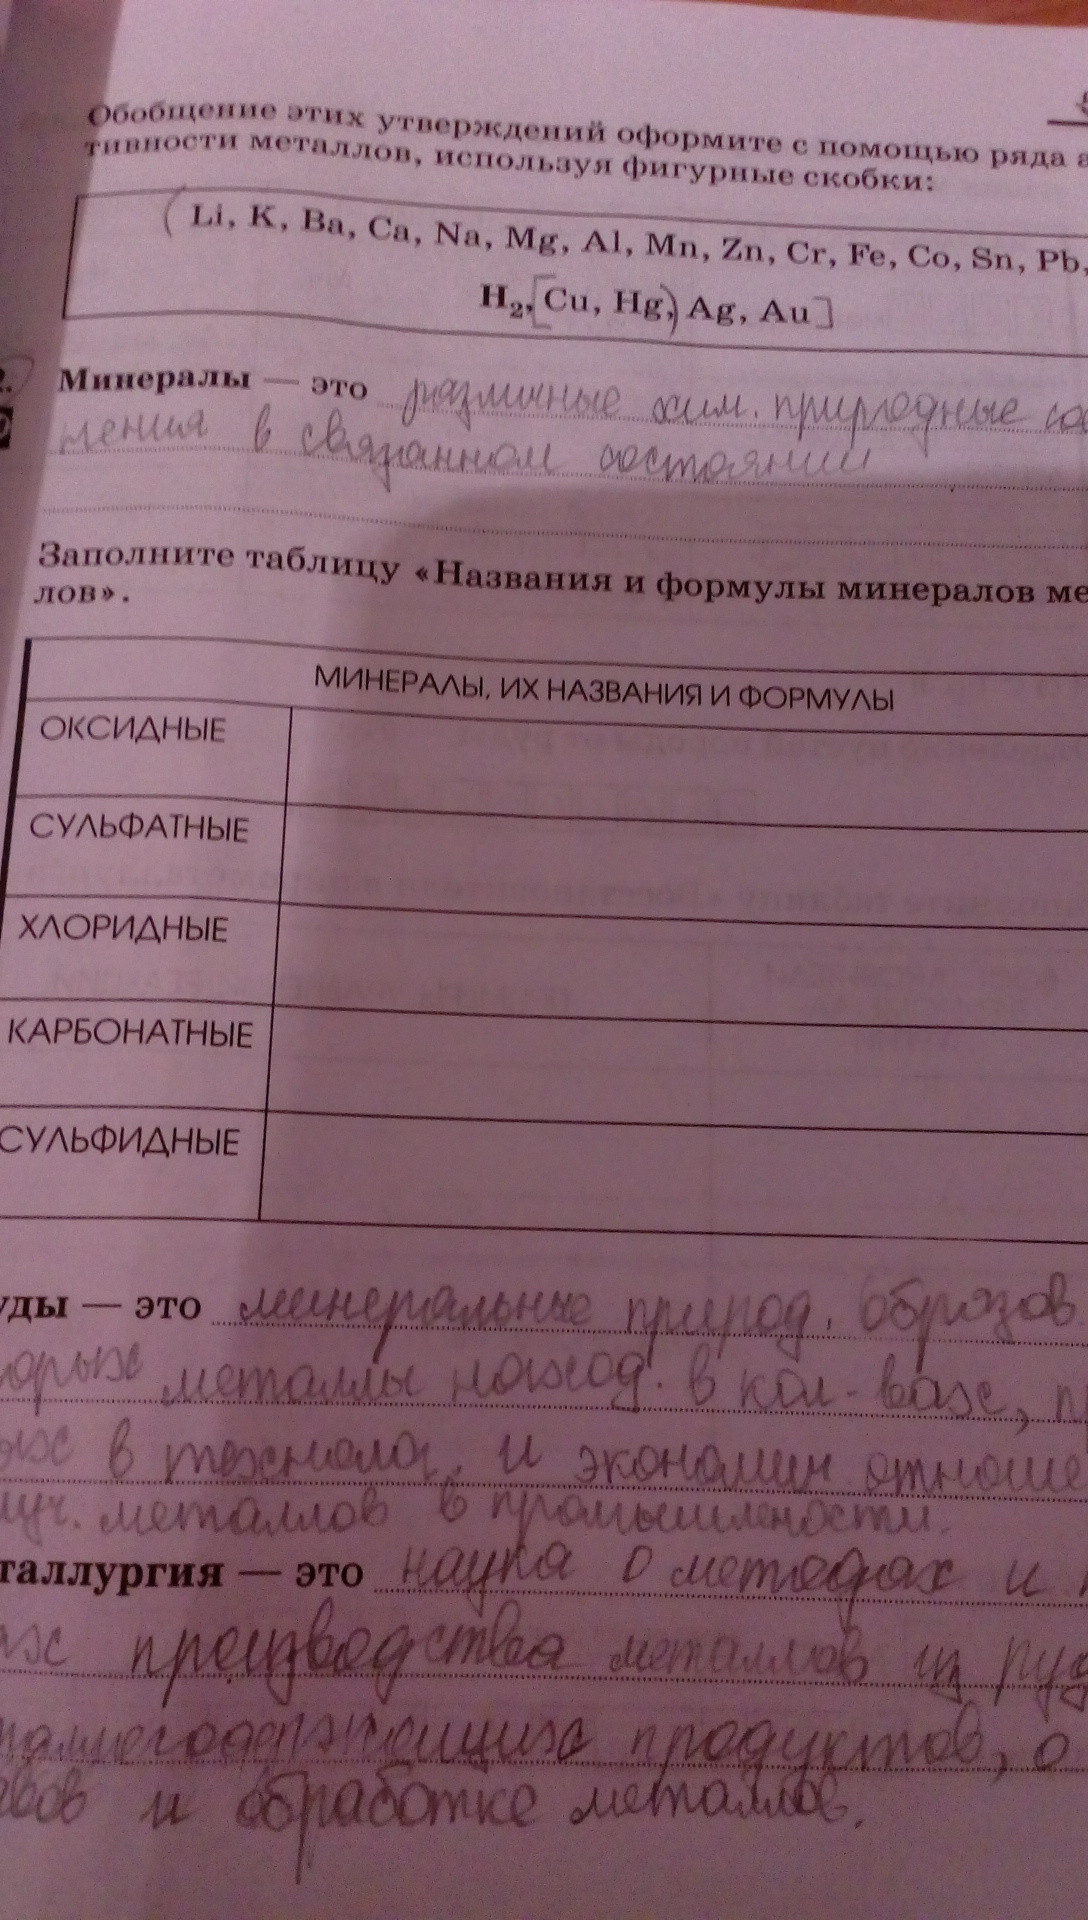 Обобщение этих утверждений оформите с помощью ряда а
тивности металлов, используя фигурные скобки:
(Li, K, Ba, Ca, Na, Mg, Al, Mn, Zn, Cr, Fe, Co, Sn, Pb,
H₂, [Cu, Hg,) Ag, Au]
2. Минералы — это различные хим. природные сое
нения в связанном состоянии
Заполните таблицу «Названия и формулы минералов ме
лов».
МИНЕРАЛЫ, ИХ НАЗВАНИЯ И ФОРМУЛЫ
ОКСИДНЫЕ
СУЛЬФАТНЫЕ
ХЛОРИДНЫЕ
КАРБОНАТНЫЕ
СУЛЬФИДНЫЕ
уды — это минеральные природ. образов
торых металлы наход. в кол-вах, п
ых в технолог. и экономич отноше
луч. металлов в промышлености.
таллургия — это наука о методах и
ах производства металлов из руд
таллосодержащих продуктов, о
авов и обработке металлов.